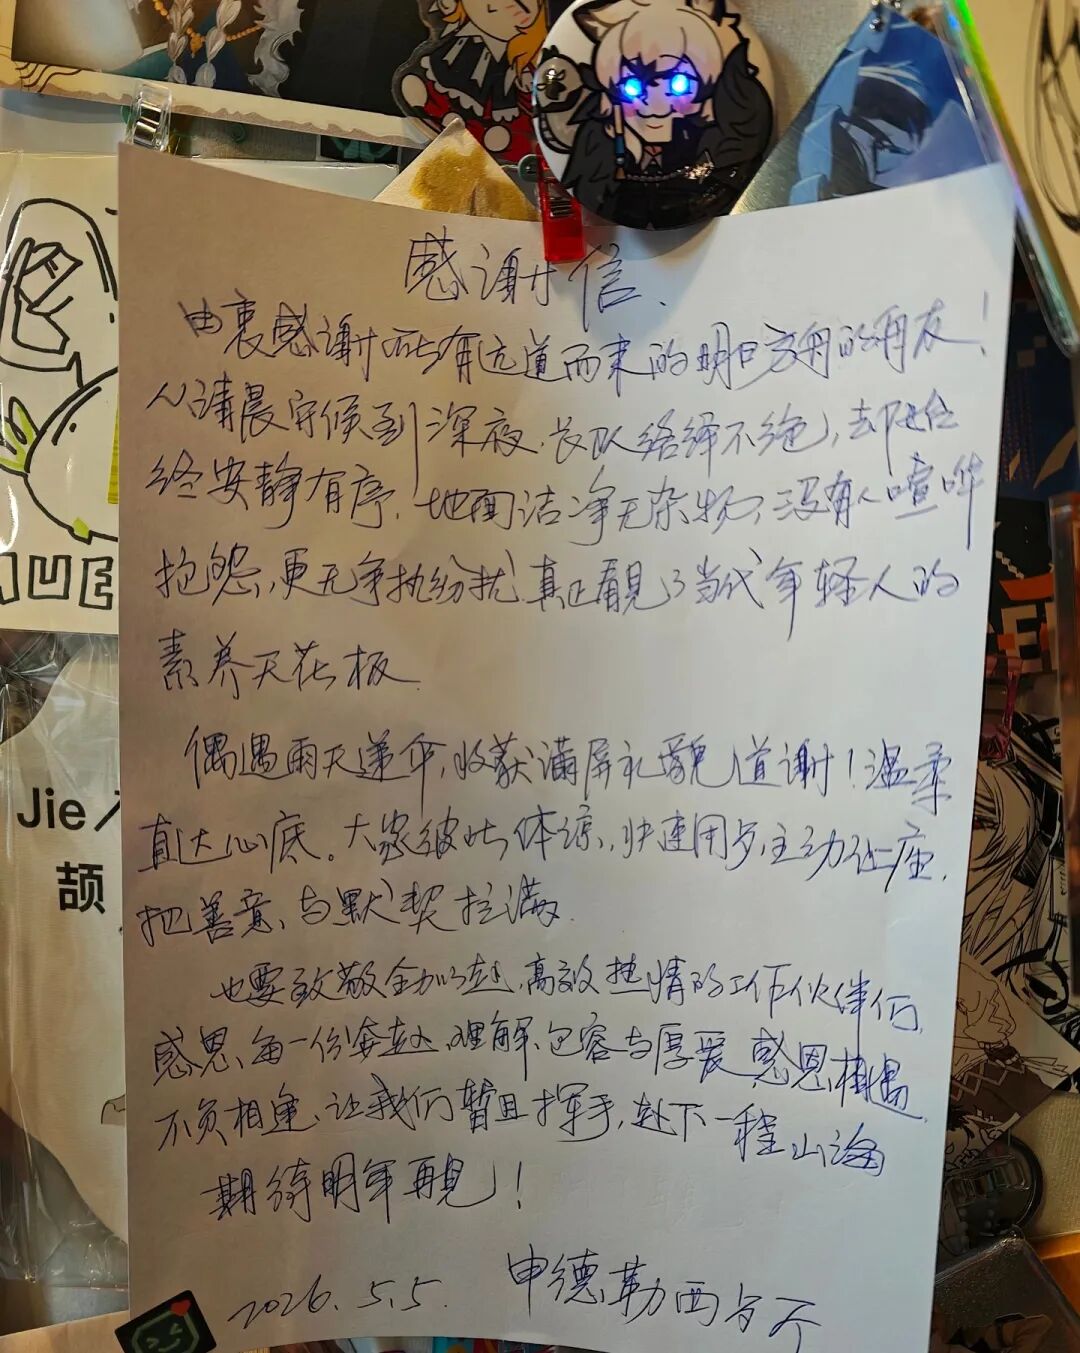 感谢信.
由衷感谢所有远道而来的明日方舟的朋友！
从清晨守候到深夜、长队络绎不绝，却始
终安静有序、地面洁净无杂物、没有人喧哗
抱怨、更无争执纷扰、真正看見了当代年轻人的
素养天花板.
偶遇雨天递伞，收获满屏礼貌道谢！温柔
直达心底。大家彼此体谅、快速用歺、主动让座、
把善意、与默契拉满.
也要致敬全力以赴、高效热情的工作伙伴们、
感恩、每一份奔赴、理解、包容与厚爱、感恩相遇、
不负相逢、让我们暂且挥手，赴下一程山海
期待明年再見！
2026.5.5. 申德勒西歺厅
Jie
颉
NUE